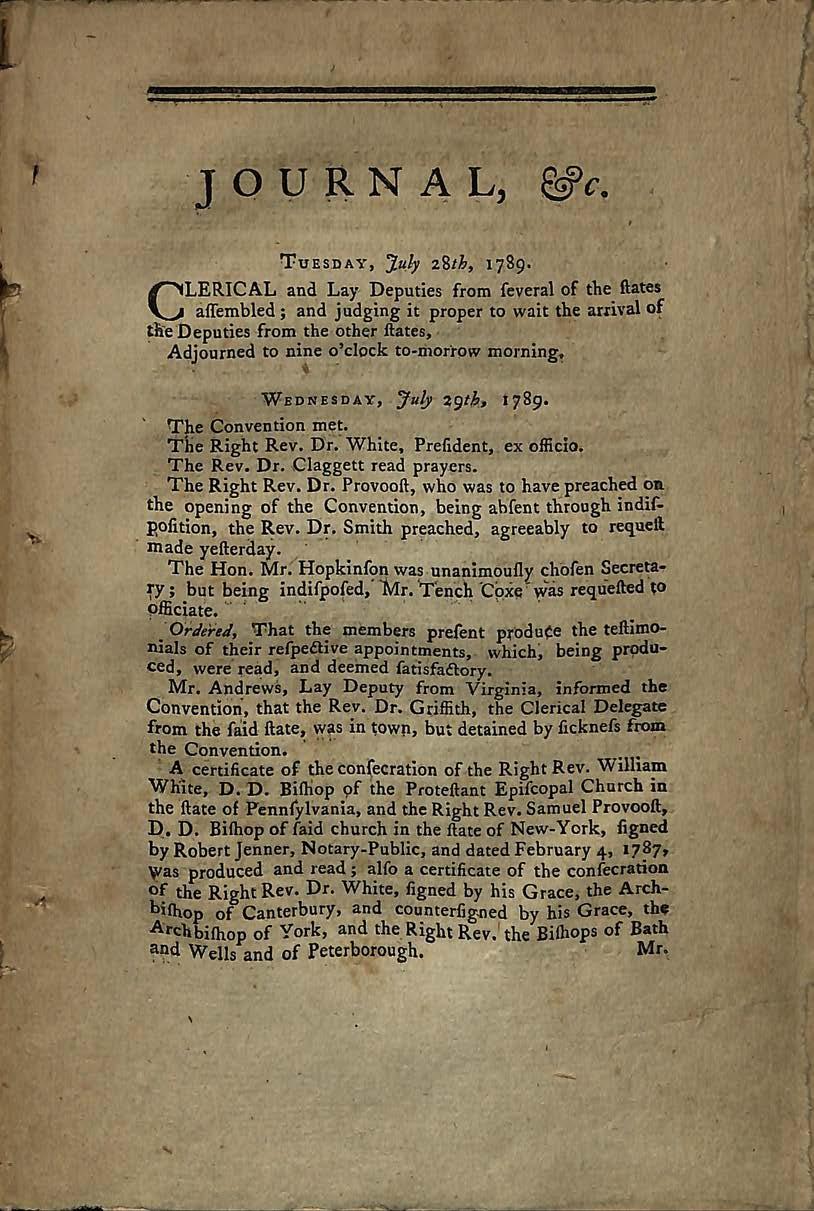 JOURNAL, &c.
TUESDAY, July 28th, 1789.
CLERICAL and Lay Deputies from ſeveral of the ſtates
aſſembled; and judging it proper to wait the arrival of
the Deputies from the other ſtates,
Adjourned to nine o'clock to-morrow morning.
WEDNESDAY, July 29th, 1789.
The Convention met.
The Right Rev. Dr. White, Preſident, ex officio.
The Rev. Dr. Claggett read prayers.
The Right Rev. Dr. Provooſt, who was to have preached on
the opening of the Convention, being abſent through indiſ-
poſition, the Rev. Dr. Smith preached, agreeably to requeſt
made yeſterday.
The Hon. Mr. Hopkinſon was unanimouſly choſen Secreta-
ry; but being indiſpoſed, Mr. Tench Coxe was requeſted to
officiate.
Ordered, That the members preſent produce the teſtimo-
nials of their reſpective appointments, which, being produ-
ced, were read, and deemed ſatisfactory.
Mr. Andrews, Lay Deputy from Virginia, informed the
Convention, that the Rev. Dr. Griffith, the Clerical Delegate
from the ſaid ſtate, was in town, but detained by ſickneſs from
the Convention.
A certificate of the conſecration of the Right Rev. William
White, D. D. Biſhop of the Proteſtant Epiſcopal Church in
the ſtate of Pennſylvania, and the Right Rev. Samuel Provooſt,
D. D. Biſhop of ſaid church in the ſtate of New-York, ſigned
by Robert Jenner, Notary-Public, and dated February 4, 1787,
was produced and read; alſo a certificate of the conſecration
of the Right Rev. Dr. White, ſigned by his Grace, the Arch-
biſhop of Canterbury, and counterſigned by his Grace, the
Archbiſhop of York, and the Right Rev. the Biſhops of Bath
and Wells and of Peterborough. Mr.